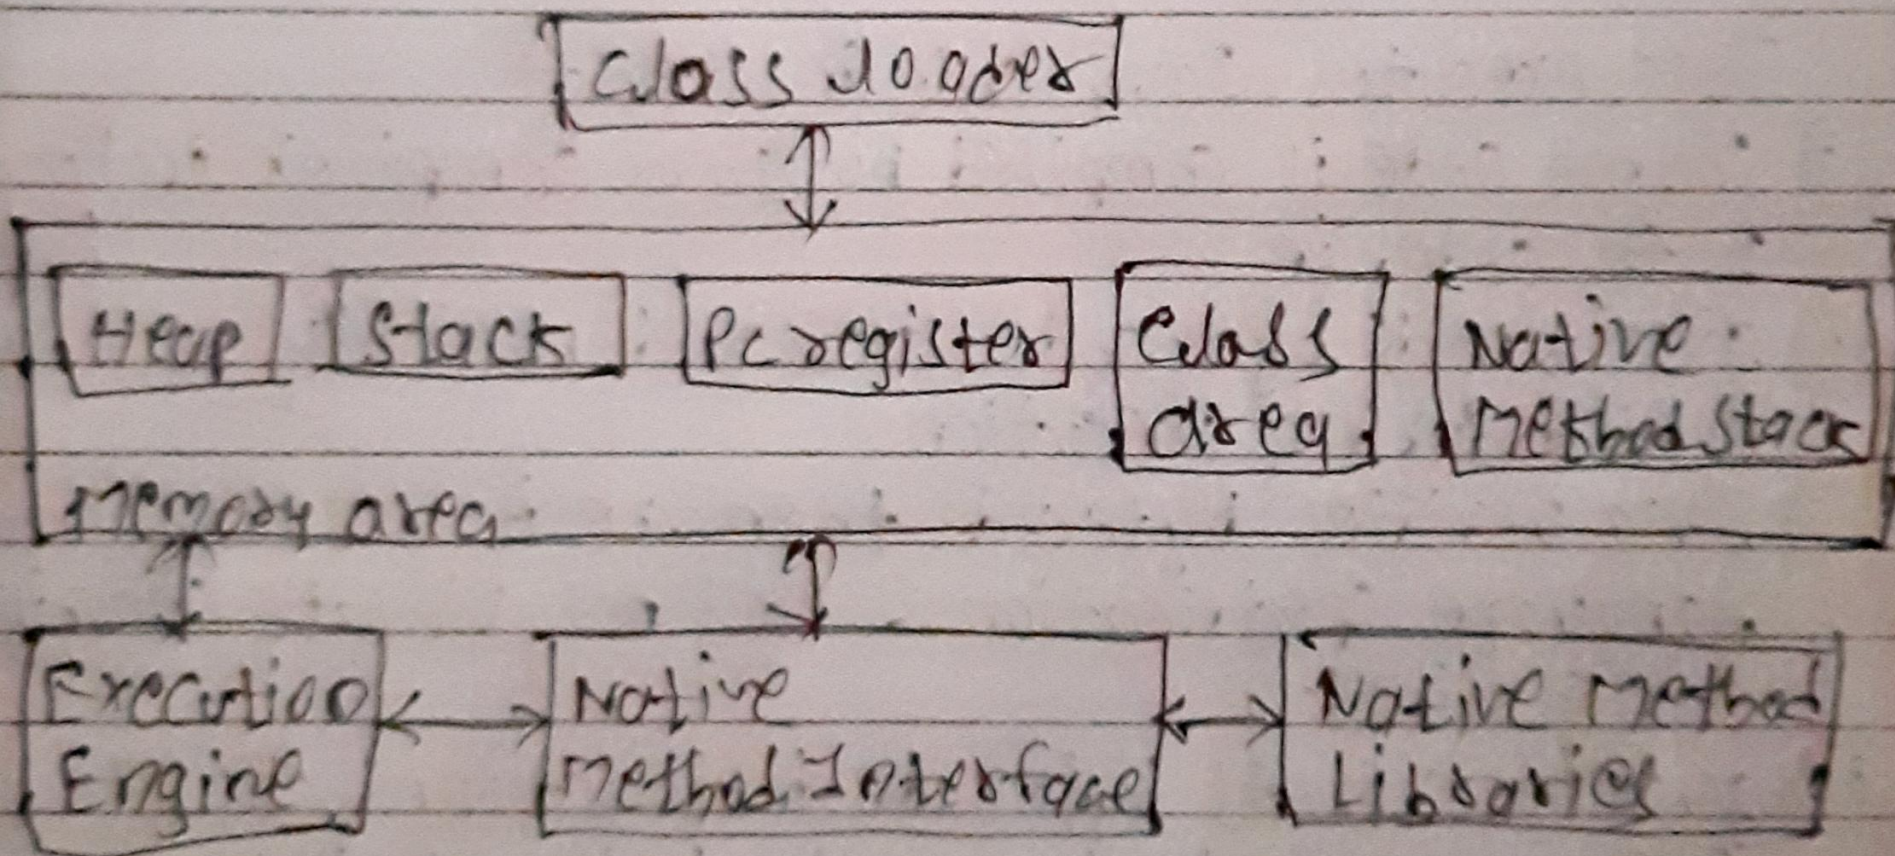 Class loader
Heap
Stack
Pc register
Class
area
Native
Method Stack
Memory area
Execution
Engine
Native
Method Interface
Native Method
Libraries